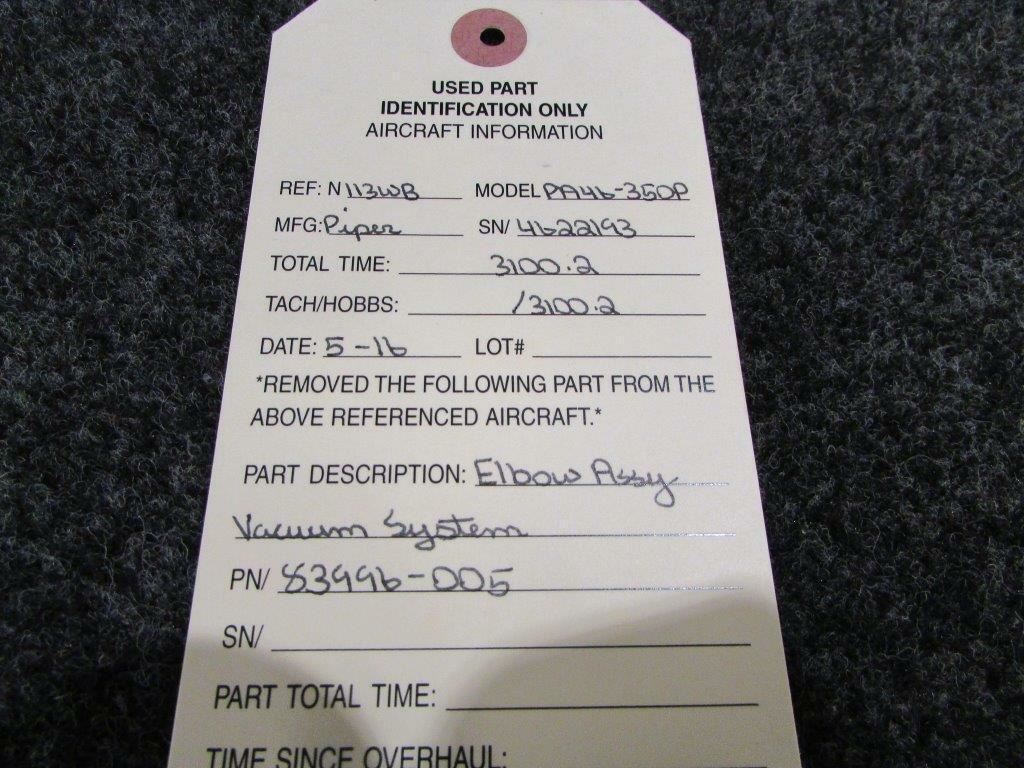 USED PART
IDENTIFICATION ONLY
AIRCRAFT INFORMATION
REF: N 113WB MODEL PA46-350P
MFG: Piper SN/ 4622193
TOTAL TIME: 3100.2
TACH/HOBBS: /3100.2
DATE: 5-16 LOT#
*REMOVED THE FOLLOWING PART FROM THE
ABOVE REFERENCED AIRCRAFT.*
PART DESCRIPTION: Elbow Assy
Vacuum System
PN/ 83996-005
SN/
PART TOTAL TIME:
TIME SINCE OVERHAUL: